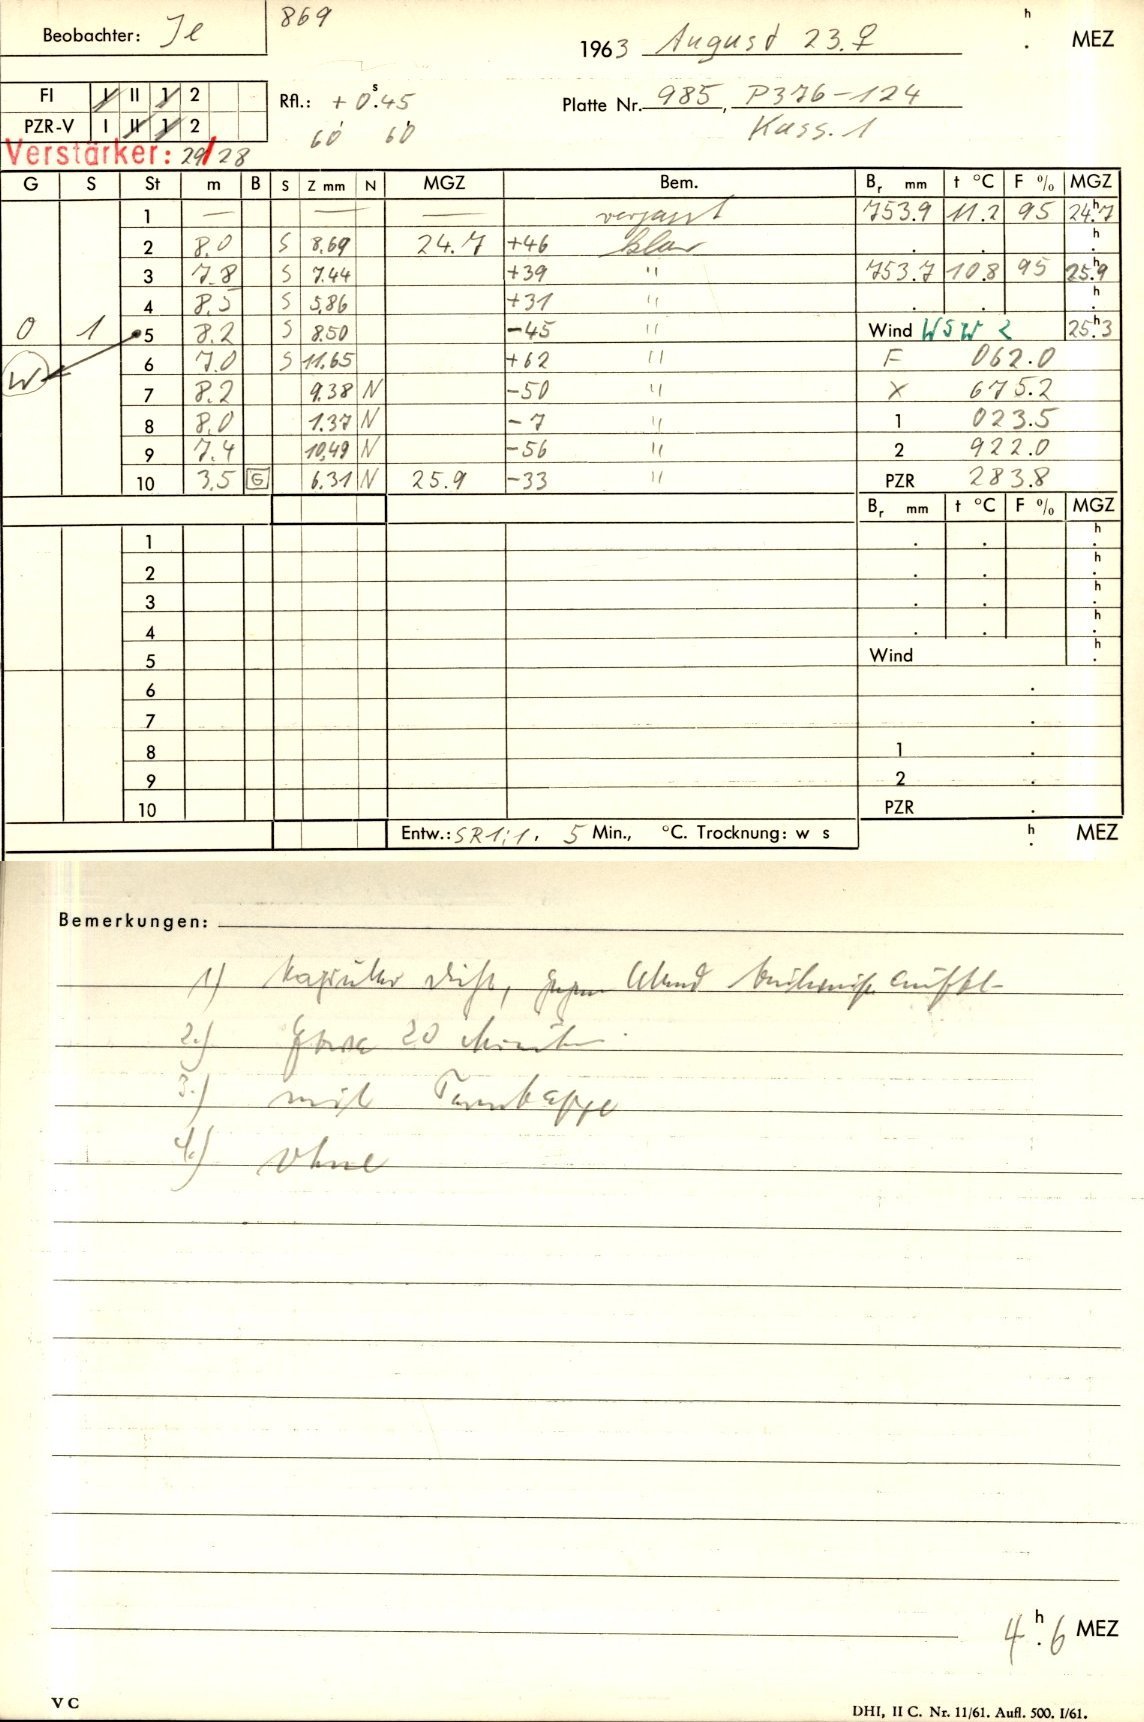 Beobachter: Je
869
1963 August 23. ♀
h . MEZ
FI I II 1 2
PZR-V I II 1 2
Rfl.: + 0.ˢ45
60 60
Platte Nr. 985, P376-124
Kass. 1
Verstärker: 29/28
G S St m B S Z mm N MGZ Bem. Br mm t °C F % MGZ
1 — — — verpasst 753.9 11.2 95 24.ʰ7
2 8.0 S 8.69 24.7 +46 klar . . h .
3 7.8 S 7.44 +39 " 753.7 10.8 95 25.ʰ9
4 8.5 S 5.86 +31 " . . h .
0 1 5 8.2 S 8.50 -45 " Wind WSW 2 25.ʰ3
W 6 7.0 S 11.65 +62 " F 062.0
7 8.2 9.38 N -50 " X 675.2
8 8.0 1.37 N -7 " 1 023.5
9 7.4 10.49 N -56 " 2 922.0
10 3.5 G 6.31 N 25.9 -33 " PZR 283.8
Br mm t °C F % MGZ
1 . . h .
2 . . h .
3 . . h .
4 . . h .
5 Wind h .
6 .
7 .
8 1 .
9 2 .
10 PZR .
Entw.: SR1:1. 5 Min., °C. Trocknung: w s
h . MEZ
Bemerkungen:
1)
2.) Etwa 20 Minuten
3.) mit Taukappe
4.) ohne
4.ʰ6 MEZ
V C
DHI, II C. Nr. 11/61. Aufl. 500. I/61.